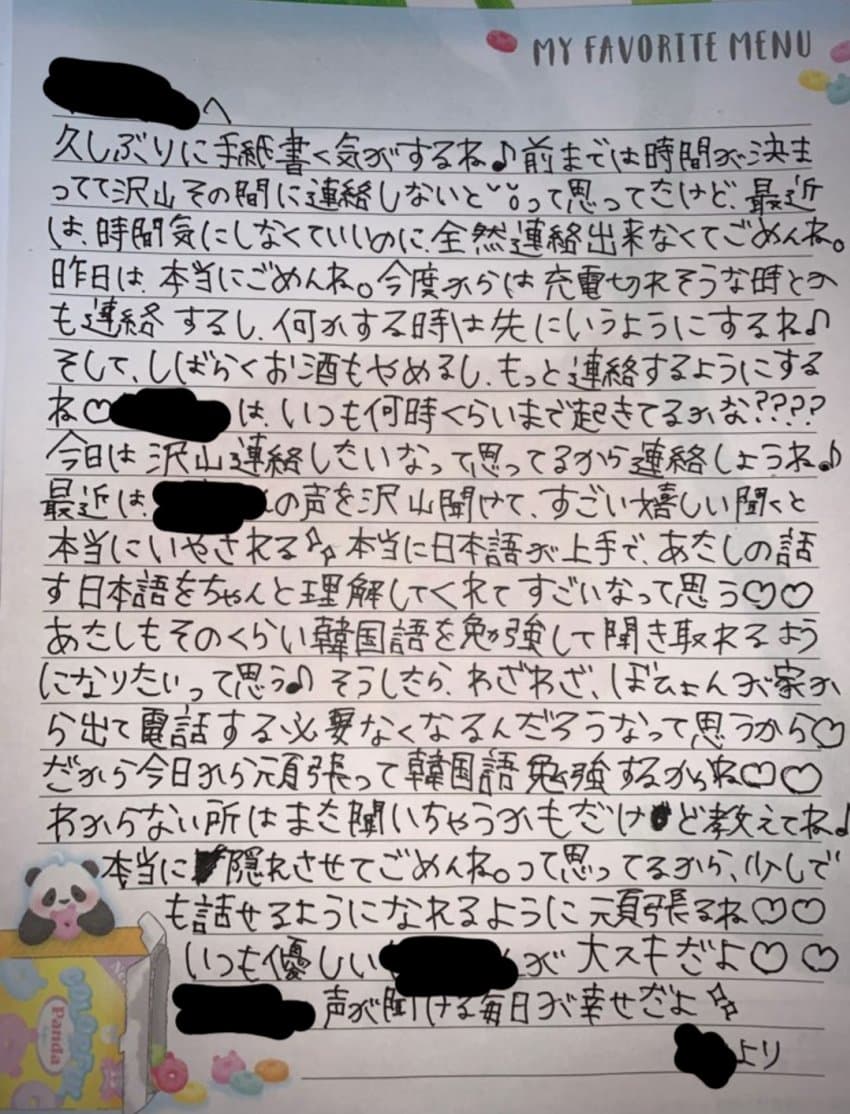 MY FAVORITE MENU
へ
久しぶりに手紙書く気がするね♪前までは時間が決ま
ってて沢山その間に連絡しないと って思ってたけど、最近
は、時間気にしなくていいのに、全然連絡出来なくてごめんね。
昨日は、本当にごめんね。今度からは充電切れそうな時とか
も連絡するし、何かする時は先にいうようにするね♪
そして、しばらくお酒もやめるし、もっと連絡するようにする
ね♡ は、いつも何時くらいまで起きてるかな????
今日は沢山連絡したいなって思ってるから連絡しようね♪
最近は、 の声を沢山聞けて、すごい嬉しい聞くと
本当にいやされる✨本当に日本語が上手で、あたしの話
す日本語をちゃんと理解してくれてすごいなって思う♡♡
あたしもそのくらい韓国語を勉強して聞き取れるよう
になりたいって思う♪そうしたら、わざわざ、ぼひょんが家か
ら出て電話する必要なくなるんだろうなって思うから♡
だから今日から頑張って韓国語勉強するからね♡♡
わからない所はまた聞いちゃうかもだけど教えてね♪
本当に隠れさせてごめんね。って思ってるから、少しで
も話せるようになれるように頑張るね♡♡
いつも優しい が大スキだよ♡♡
声が聞ける毎日が幸せだよ✨
より
COLORFUL
Panda